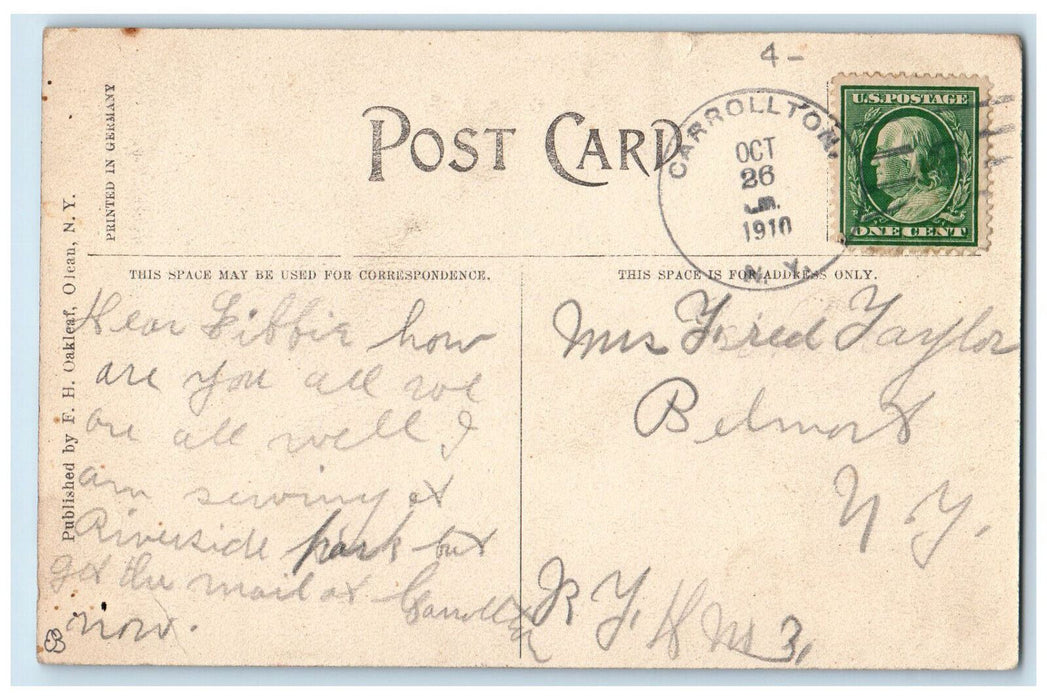 4-
POST CARD
CARROLLTON,
OCT
26
1910
N.Y.
U.S. POSTAGE
ONE CENT
PRINTED IN GERMANY
Published by F. H. Oakleaf, Olean, N. Y.
THIS SPACE MAY BE USED FOR CORRESPONDENCE.
THIS SPACE IS FOR ADDRESS ONLY.
Dear Libbie how
are you all we
are all well I
am sewing at
Riverside park but
get the mail at Carrollton
now.
Mrs Fred Taylor
Belmont
N Y.
R F. D No 3,